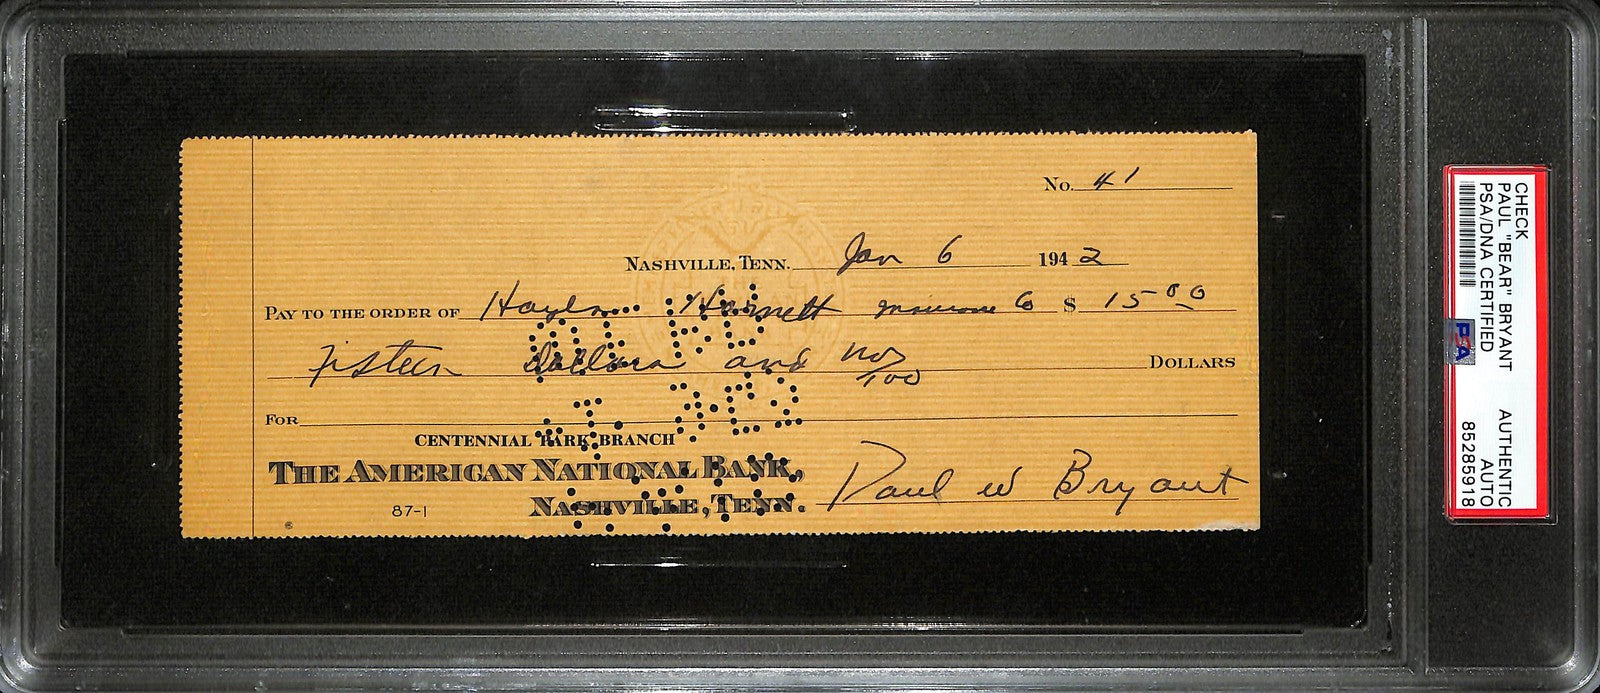 No. 41
NASHVILLE, TENN. Jan 6 1942
PAY TO THE ORDER OF $ 15 00
Fifteen dollars and no/100 DOLLARS
FOR
CENTENNIAL PARK BRANCH
THE AMERICAN NATIONAL BANK,
NASHVILLE, TENN.
87-1
Paul W Bryant
CHECK
PAUL "BEAR" BRYANT AUTHENTIC
PSA/DNA CERTIFIED AUTO
85285918
PSA